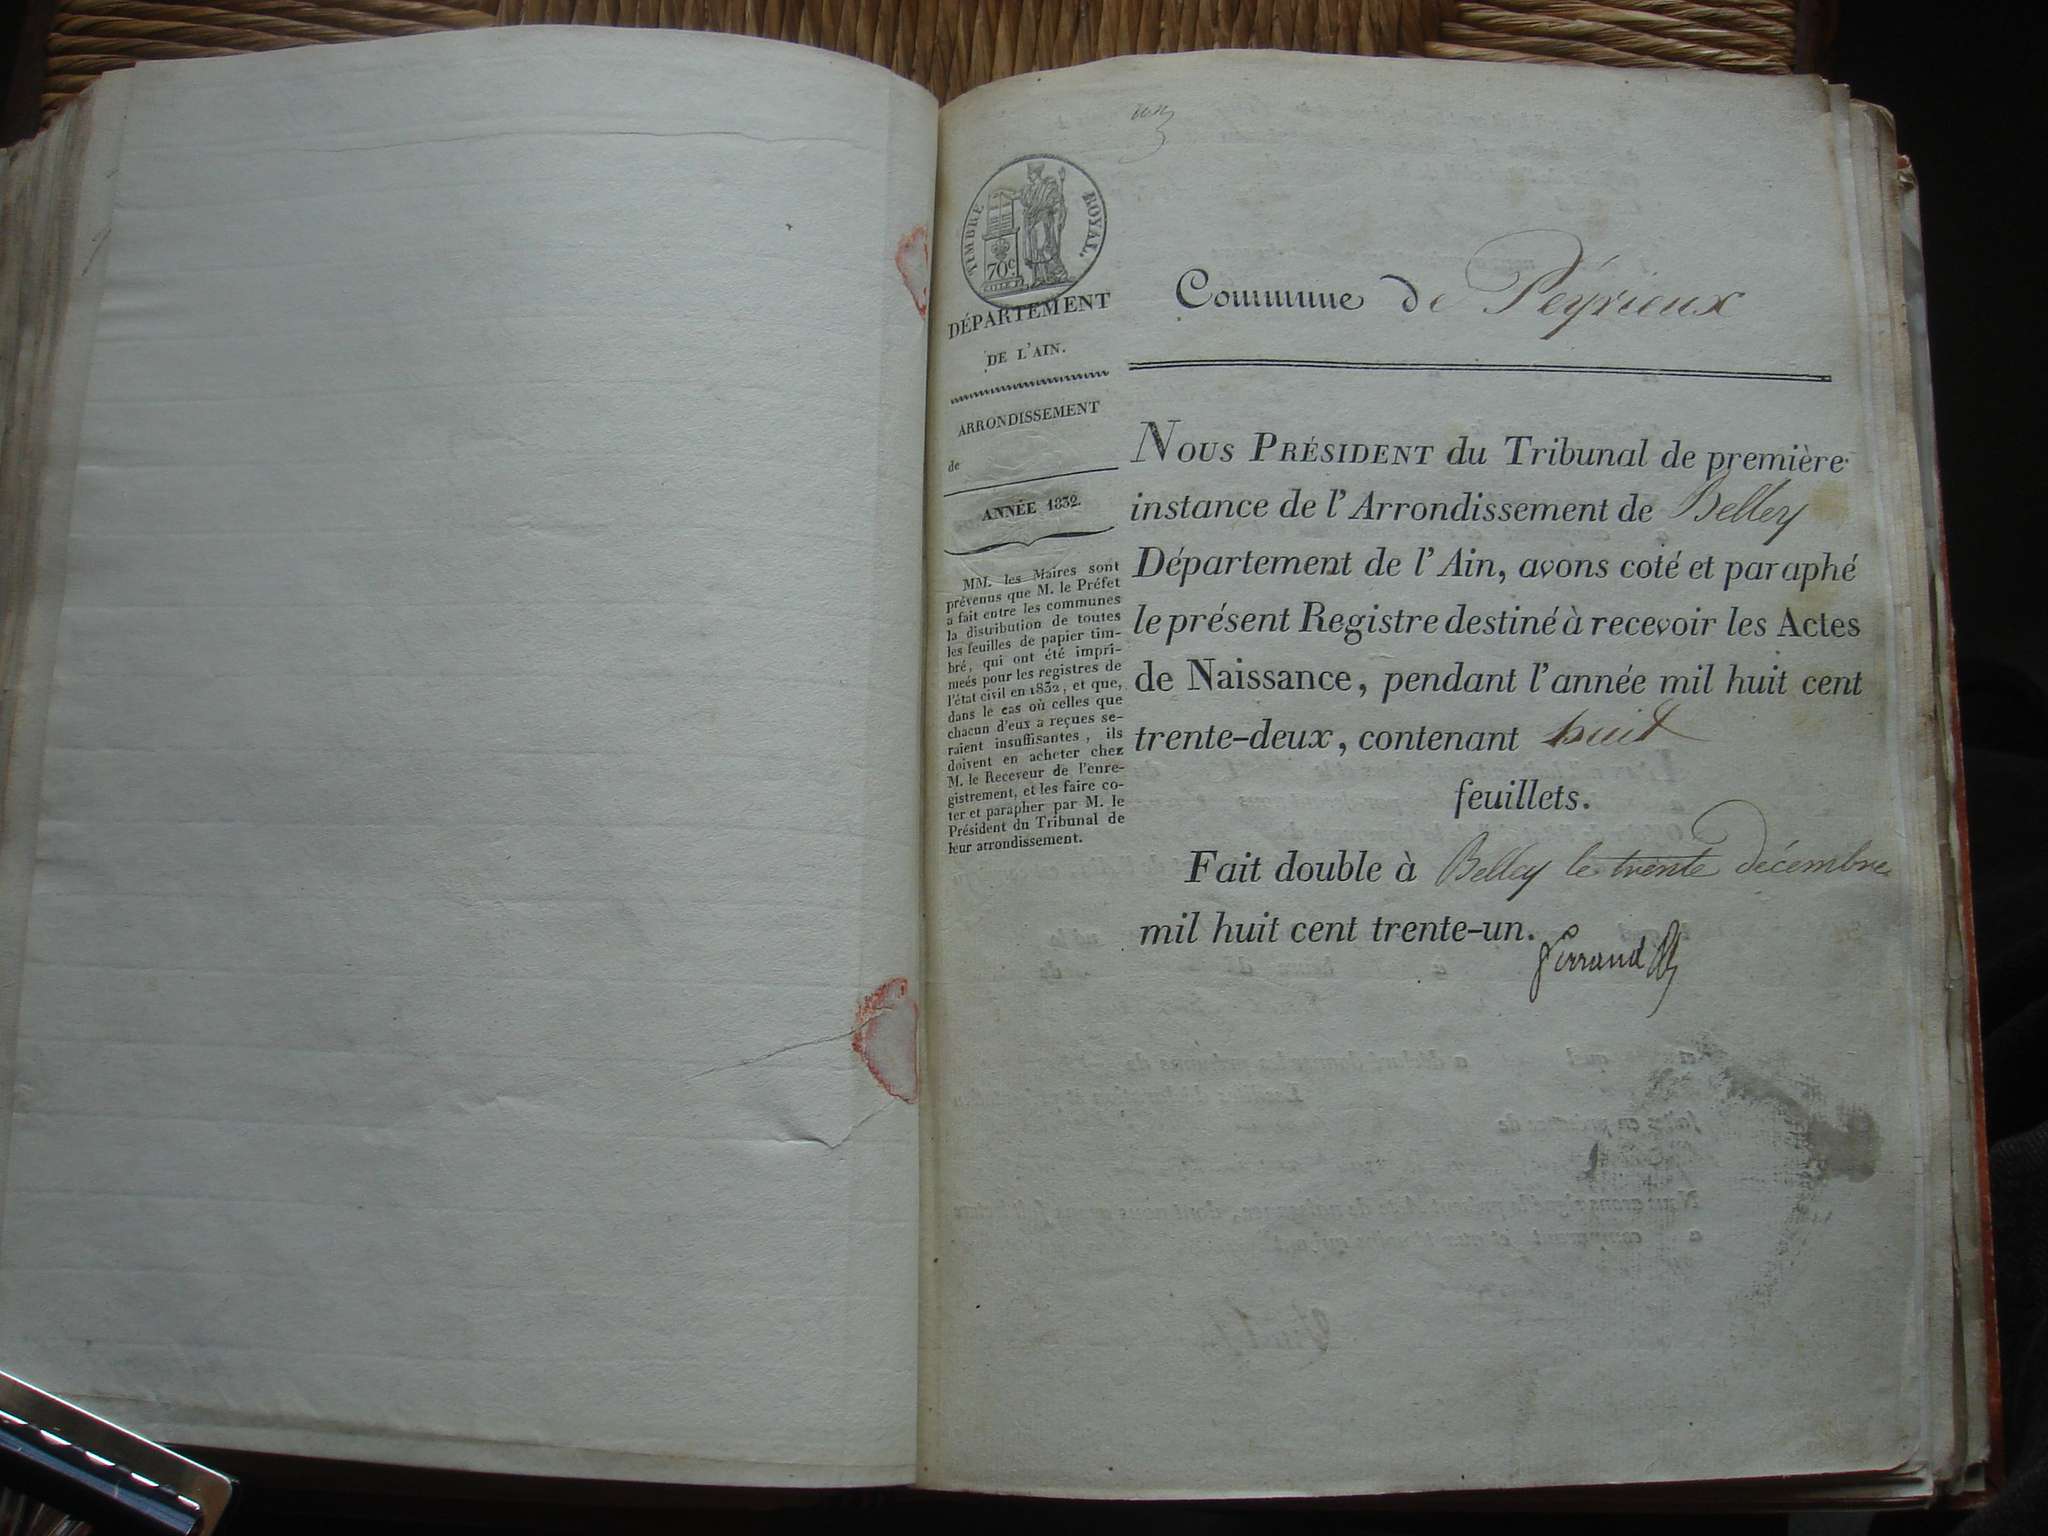 un
TIMBRE ROYAL.
70c
DÉPARTEMENT
DE L'AIN.
ARRONDISSEMENT
de
ANNÉE 1832.
MM. les Maires sont
prévenus que M. le Préfet
a fait entre les communes
la distribution de toutes
les feuilles de papier tim-
bré, qui ont été impri-
meés pour les registres de
l'état civil en 1832, et que,
dans le cas où celles que
chacun d'eux a reçues se-
raient insuffisantes, ils
doivent en acheter chez
M. le Receveur de l'enre-
gistrement, et les faire co-
ter et parapher par M. le
Président du Tribunal de
leur arrondissement.
Commune de Peyrieux
NOUS PRÉSIDENT du Tribunal de première
instance de l'Arrondissement de Belley
Département de l'Ain, avons coté et paraphé
le présent Registre destiné à recevoir les Actes
de Naissance, pendant l'année mil huit cent
trente-deux, contenant huit
feuillets.
Fait double à Belley le trente décembre
mil huit cent trente-un.
Ferrand